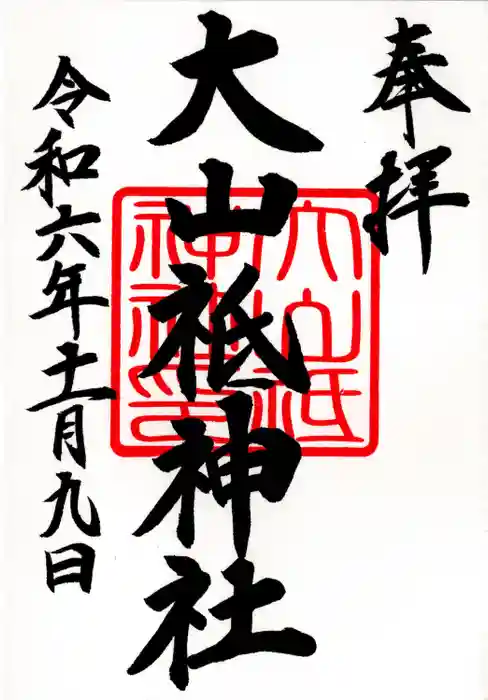 奉拝
大山祇神社
大山祇神社印
令和六年十一月九日